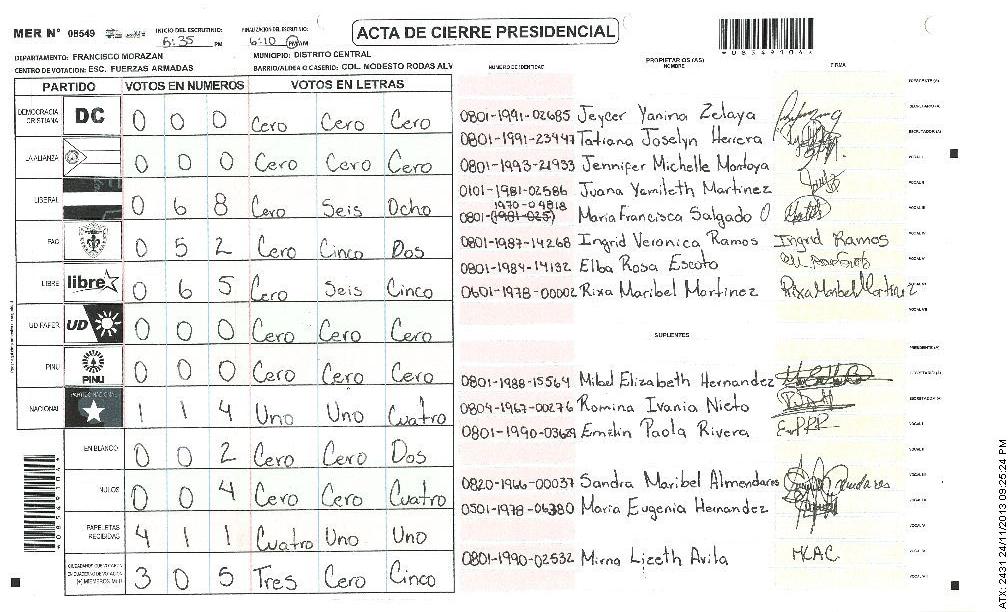 MER Nº 08549
INICIO DEL ESCRUTINIO: 5:35 PM
FINALIZACION DEL ESCRUTINIO: 6:10 PM AM
ACTA DE CIERRE PRESIDENCIAL
DEPARTAMENTO: FRANCISCO MORAZAN
MUNICIPIO: DISTRITO CENTRAL
CENTRO DE VOTACION: ESC. FUERZAS ARMADAS
BARRIO/ALDEA O CASERIO: COL. MODESTO RODAS ALV
PARTIDO VOTOS EN NUMEROS VOTOS EN LETRAS
DEMOCRACIA CRISTIANA DC 0 0 0 Cero Cero Cero
LA ALIANZA 0 0 0 Cero Cero Cero
LIBERAL 0 6 8 Cero Seis Ocho
PAC 0 5 2 Cero Cinco Dos
LIBRE libre 0 6 5 Cero Seis Cinco
UD FAPER UD 0 0 0 Cero Cero Cero
PINU PINU 0 0 0 Cero Cero Cero
NACIONAL PARTIDO NACIONAL 1 1 4 Uno Uno Cuatro
EN BLANCO 0 0 2 Cero Cero Dos
NULOS 0 0 4 Cero Cero Cuatro
PAPELETAS RECIBIDAS 4 1 1 Cuatro Uno Uno
3 0 5 Tres Cero Cinco
NUMERO DE IDENTIDAD PROPIETARIOS (AS) NOMBRE FIRMA
0801-1991-02685 Jeycer Yanina Zelaya
0801-1991-23447 Tatiana Joselyn Herrera
0801-1993-21933 Jennifer Michelle Montoya
0101-1981-02586 Juana Yemileth Martinez
1970-04818
0801-(1981-025) Maria Francisca Salgado O
0801-1987-14268 Ingrid Veronica Ramos Ingrid Ramos
0801-1984-14132 Elba Rosa Escoto
0601-1978-00002 Rixa Maribel Martinez Rixa Maribel Martinez
SUPLENTES
0801-1988-15564 Mibel Elizabeth Hernandez
0804-1967-00276 Romina Ivania Nieto
0801-1990-03629 Emelin Paola Rivera
0820-1966-00037 Sandra Maribel Almendares
0501-1978-06380 Maria Eugenia Hernandez
0801-1990-02532 Mirna Lizeth Avila
ATX: 2431 24/11/2013 09:25:24 PM